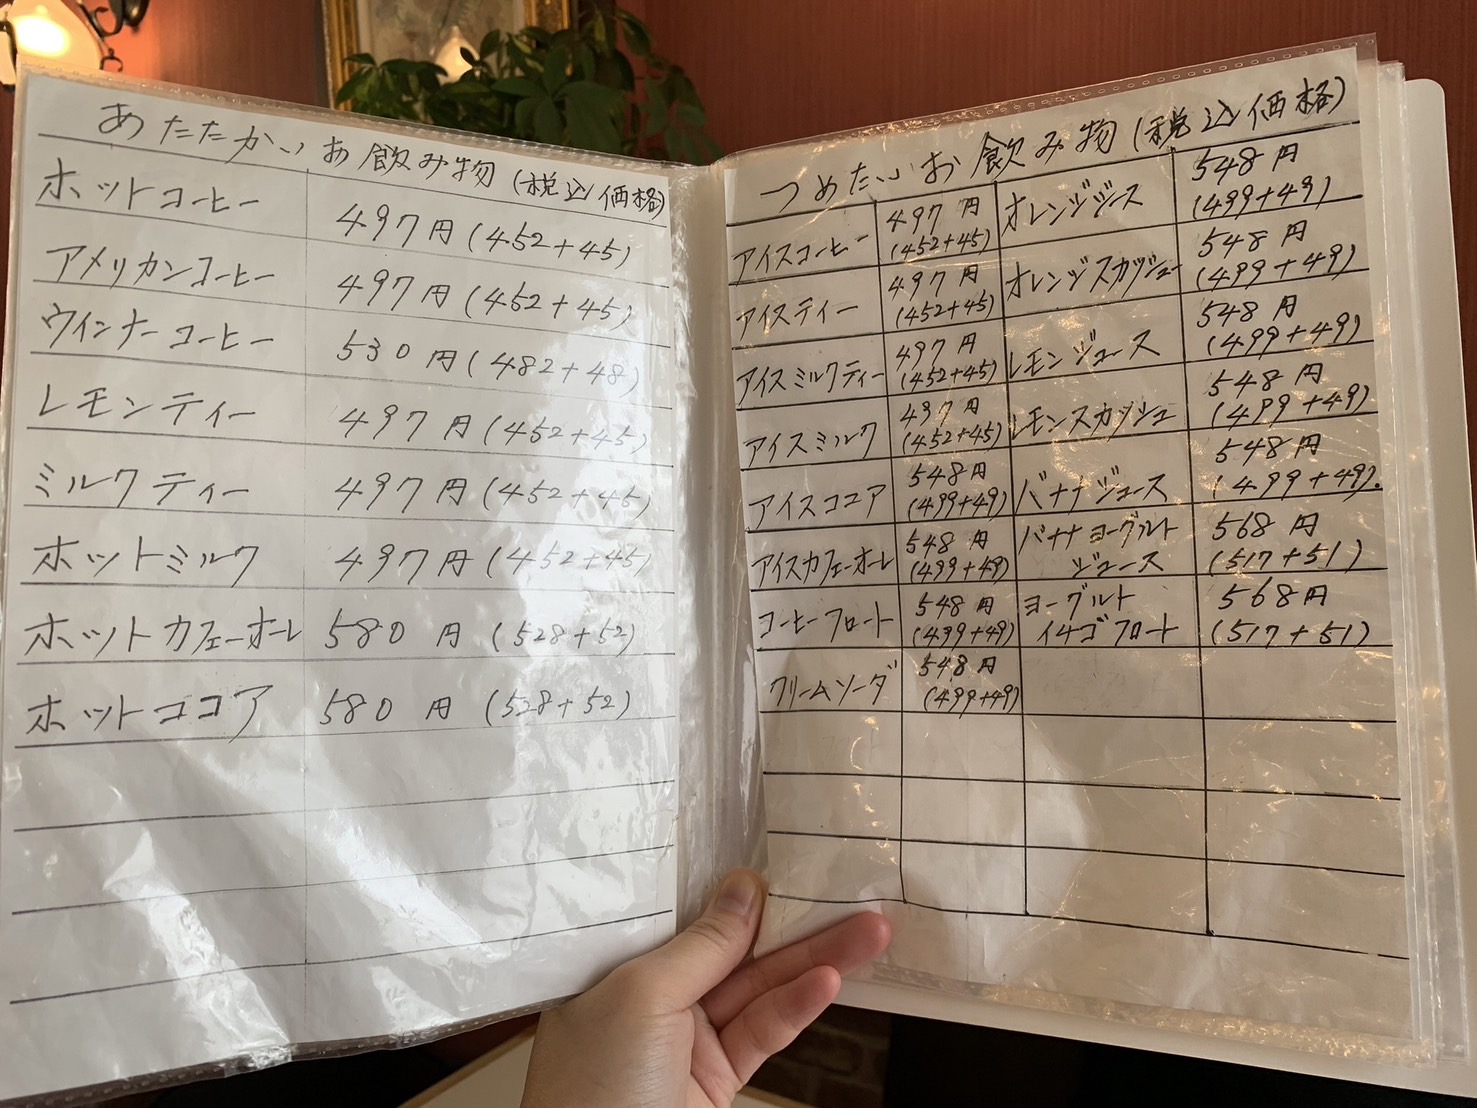 あたたかいお飲み物(税込価格)
ホットコーヒー 497円(452+45)
アメリカンコーヒー 497円(452+45)
ウインナーコーヒー 530円(482+48)
レモンティー 497円(452+45)
ミルクティー 497円(452+45)
ホットミルク 497円(452+45)
ホットカフェーオーレ 580円(528+52)
ホットココア 580円(528+52)
つめたいお飲み物(税込価格)
アイスコーヒー 497円
(452+45)
アイスティー 497円
(452+45)
アイスミルクティー 497円
(452+45)
アイスミルク 497円
(452+45)
アイスココア 548円
(499+49)
アイスカフェーオーレ 548円
(499+49)
コーヒーフロート 548円
(499+49)
クリームソーダ 548円
(499+49)
オレンジジュース 548円
(499+49)
オレンジスカッシュ 548円
(499+49)
レモンジュース 548円
(499+49)
レモンスカッシュ 548円
(499+49)
バナナジュース 548円
(499+49).
バナナヨーグルト 568円
ジュース (517+51)
ヨーグルト 568円
イチゴフロート (517+51)